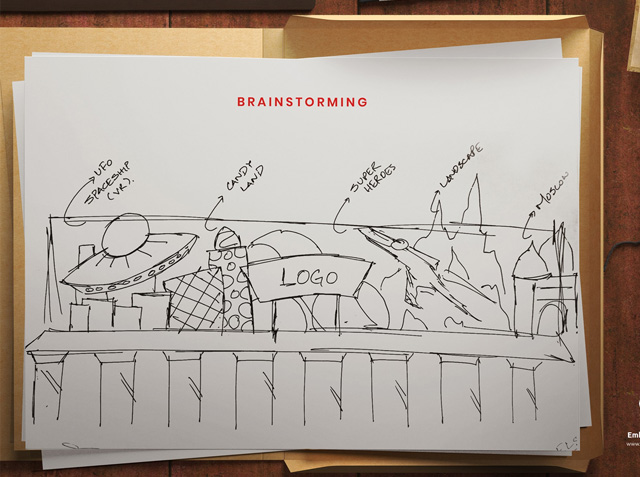 BRAINSTORMING
UFO
SPACESHIP
(VR).
CANDY
LAND
SUPER
HEROES
LANDSCAPE
MOSCOW
LOGO